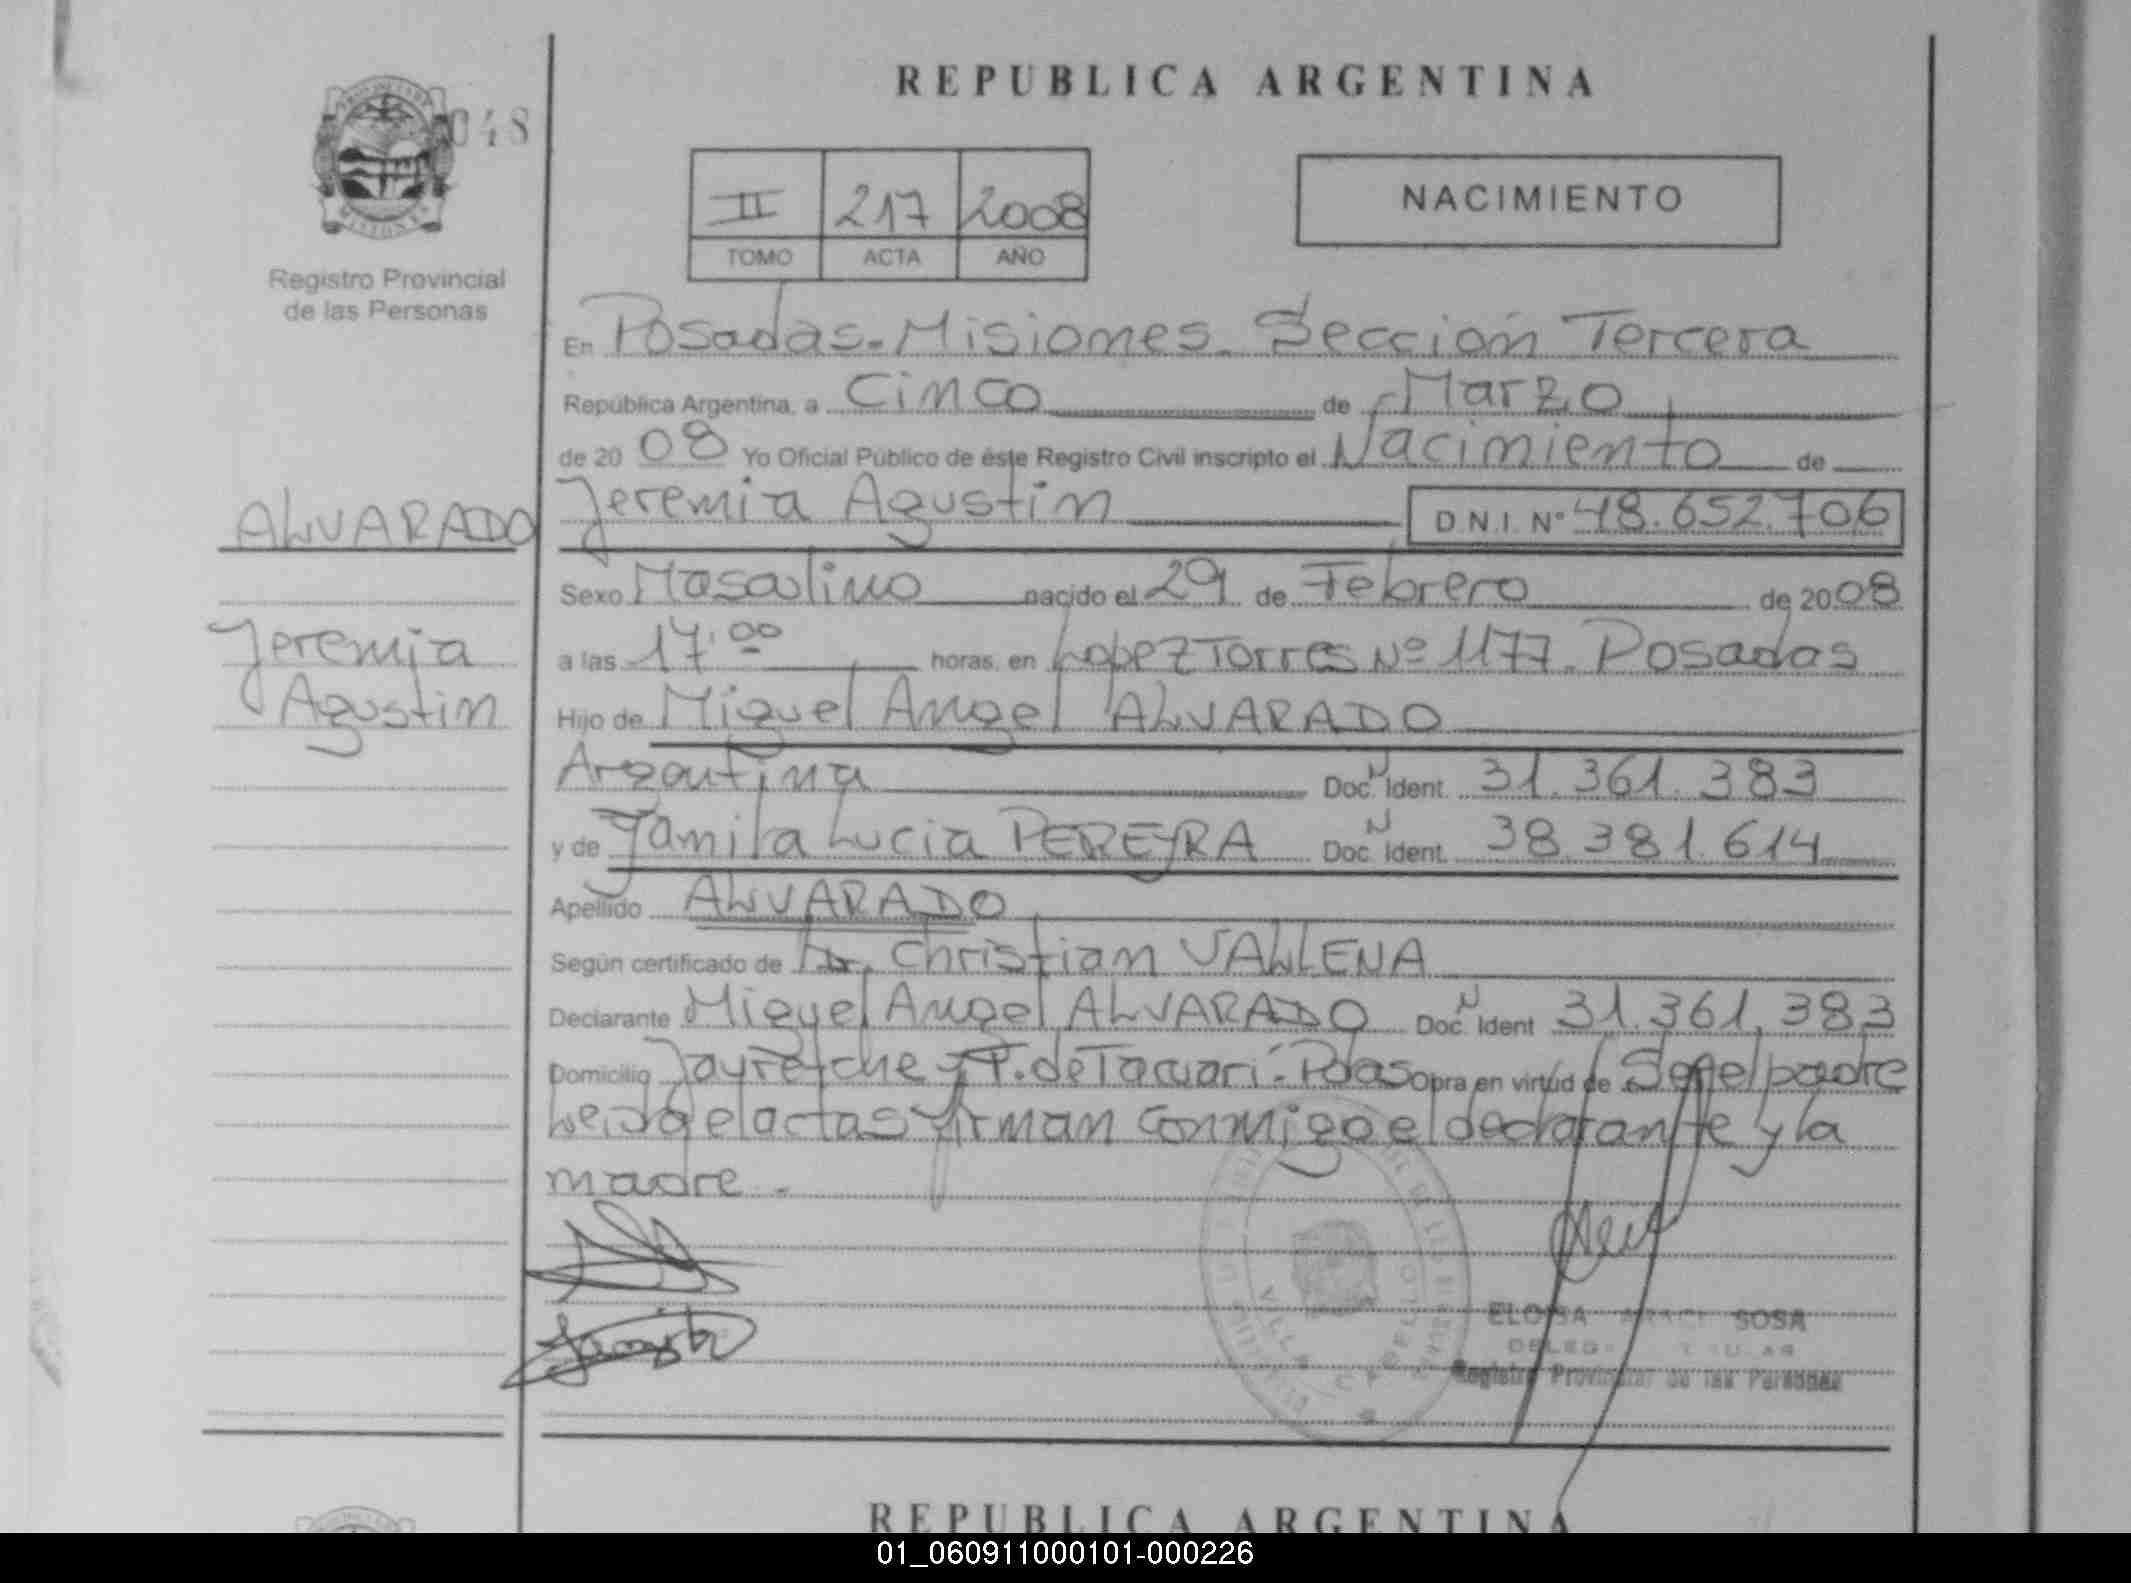 REPUBLICA ARGENTINA
048
II 217 2008
TOMO ACTA AÑO
NACIMIENTO
Registro Provincial
de las Personas
En Posadas-Misiones. Sección Tercera
República Argentina, a Cinco de Marzo
de 2008 Yo Oficial Público de éste Registro Civil inscripto el Nacimiento de
ALVARADO
Jeremia Agustin D.N.I. Nº 48.652.706
Sexo Masculino nacido el 29 de Febrero de 2008
Jeremia
Agustin
a las 17:00 horas, en Lopez Torres Nº 1177. Posadas
Hijo de Miguel Angel ALVARADO
Argentina Doc. N Ident. 31.361.383
y de Yamila Lucia PEREYRA Doc. N Ident. 38.381.614
Apellido ALVARADO
Según certificado de Dr. Christian VALLENA
Declarante Miguel Angel ALVARADO Doc. N Ident 31.361.383
Domicilio Jauretche y P. de Tacuari.- Pdas Opra en virtud de Ser el padre
Leida el acta firman conmigo el declarante y la
madre.-
VILLA CABELLO
ELOISA SOSA
Registro Provincial de las Personas
REPUBLICA ARGENTINA
01_060911000101-000226